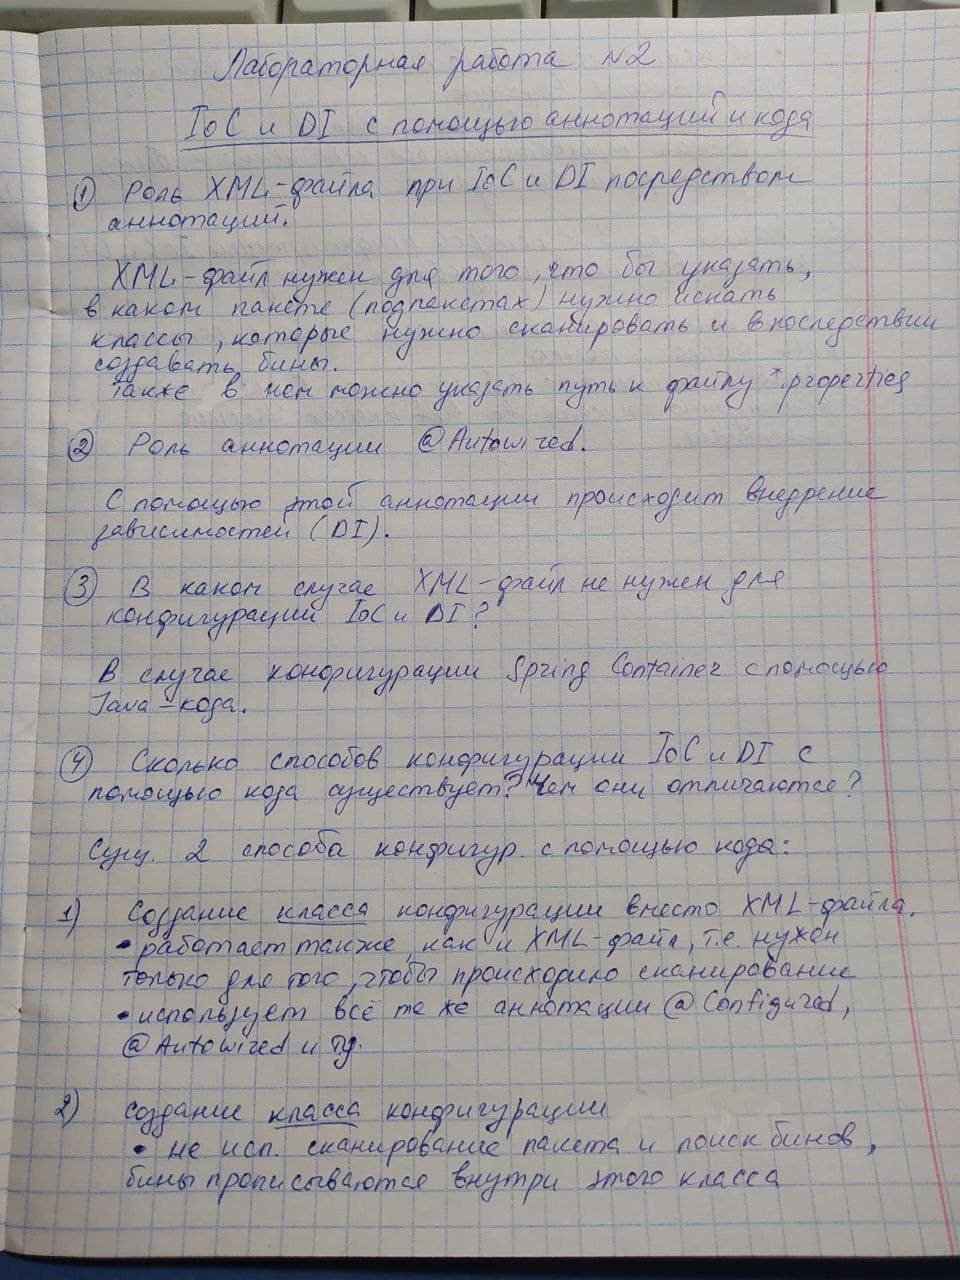 Лабораторная работа №2
IoC и DI с помощью аннотаций и кода
① Роль XML-файла при IoC и DI посредством
аннотаций.
XML-файл нужен для того, что бы указать,
в каком пакете (подпекстах) нужно искать
классы, которые нужно сканировать и впоследствии
создавать бины.
Также в нем можно указать путь к файлу *.properties
② Роль аннотации @Autowired.
С помощью этой аннотации происходит внедрение
зависимостей (DI).
③ В каком случае XML-файл не нужен для
конфигурации IoC и DI?
В случае конфигурации Spring Container с помощью
Java-кода.
④ Сколько способов конфигурации IoC и DI с
помощью кода существует? Чем они отличаются?
Сущ. 2 способа конфигур. с помощью кода:
1) Создание класса конфигурации вместо XML-файла.
• работает также, как и XML-файл, т.е. нужен
только для того, чтобы происходило сканирование
• использует всё те же аннотации @Configured,
@Autowired и тд.
2) создание класса конфигурации
• не исп. сканирование пакета и поиск бинов,
бины прописываются внутри этого класса